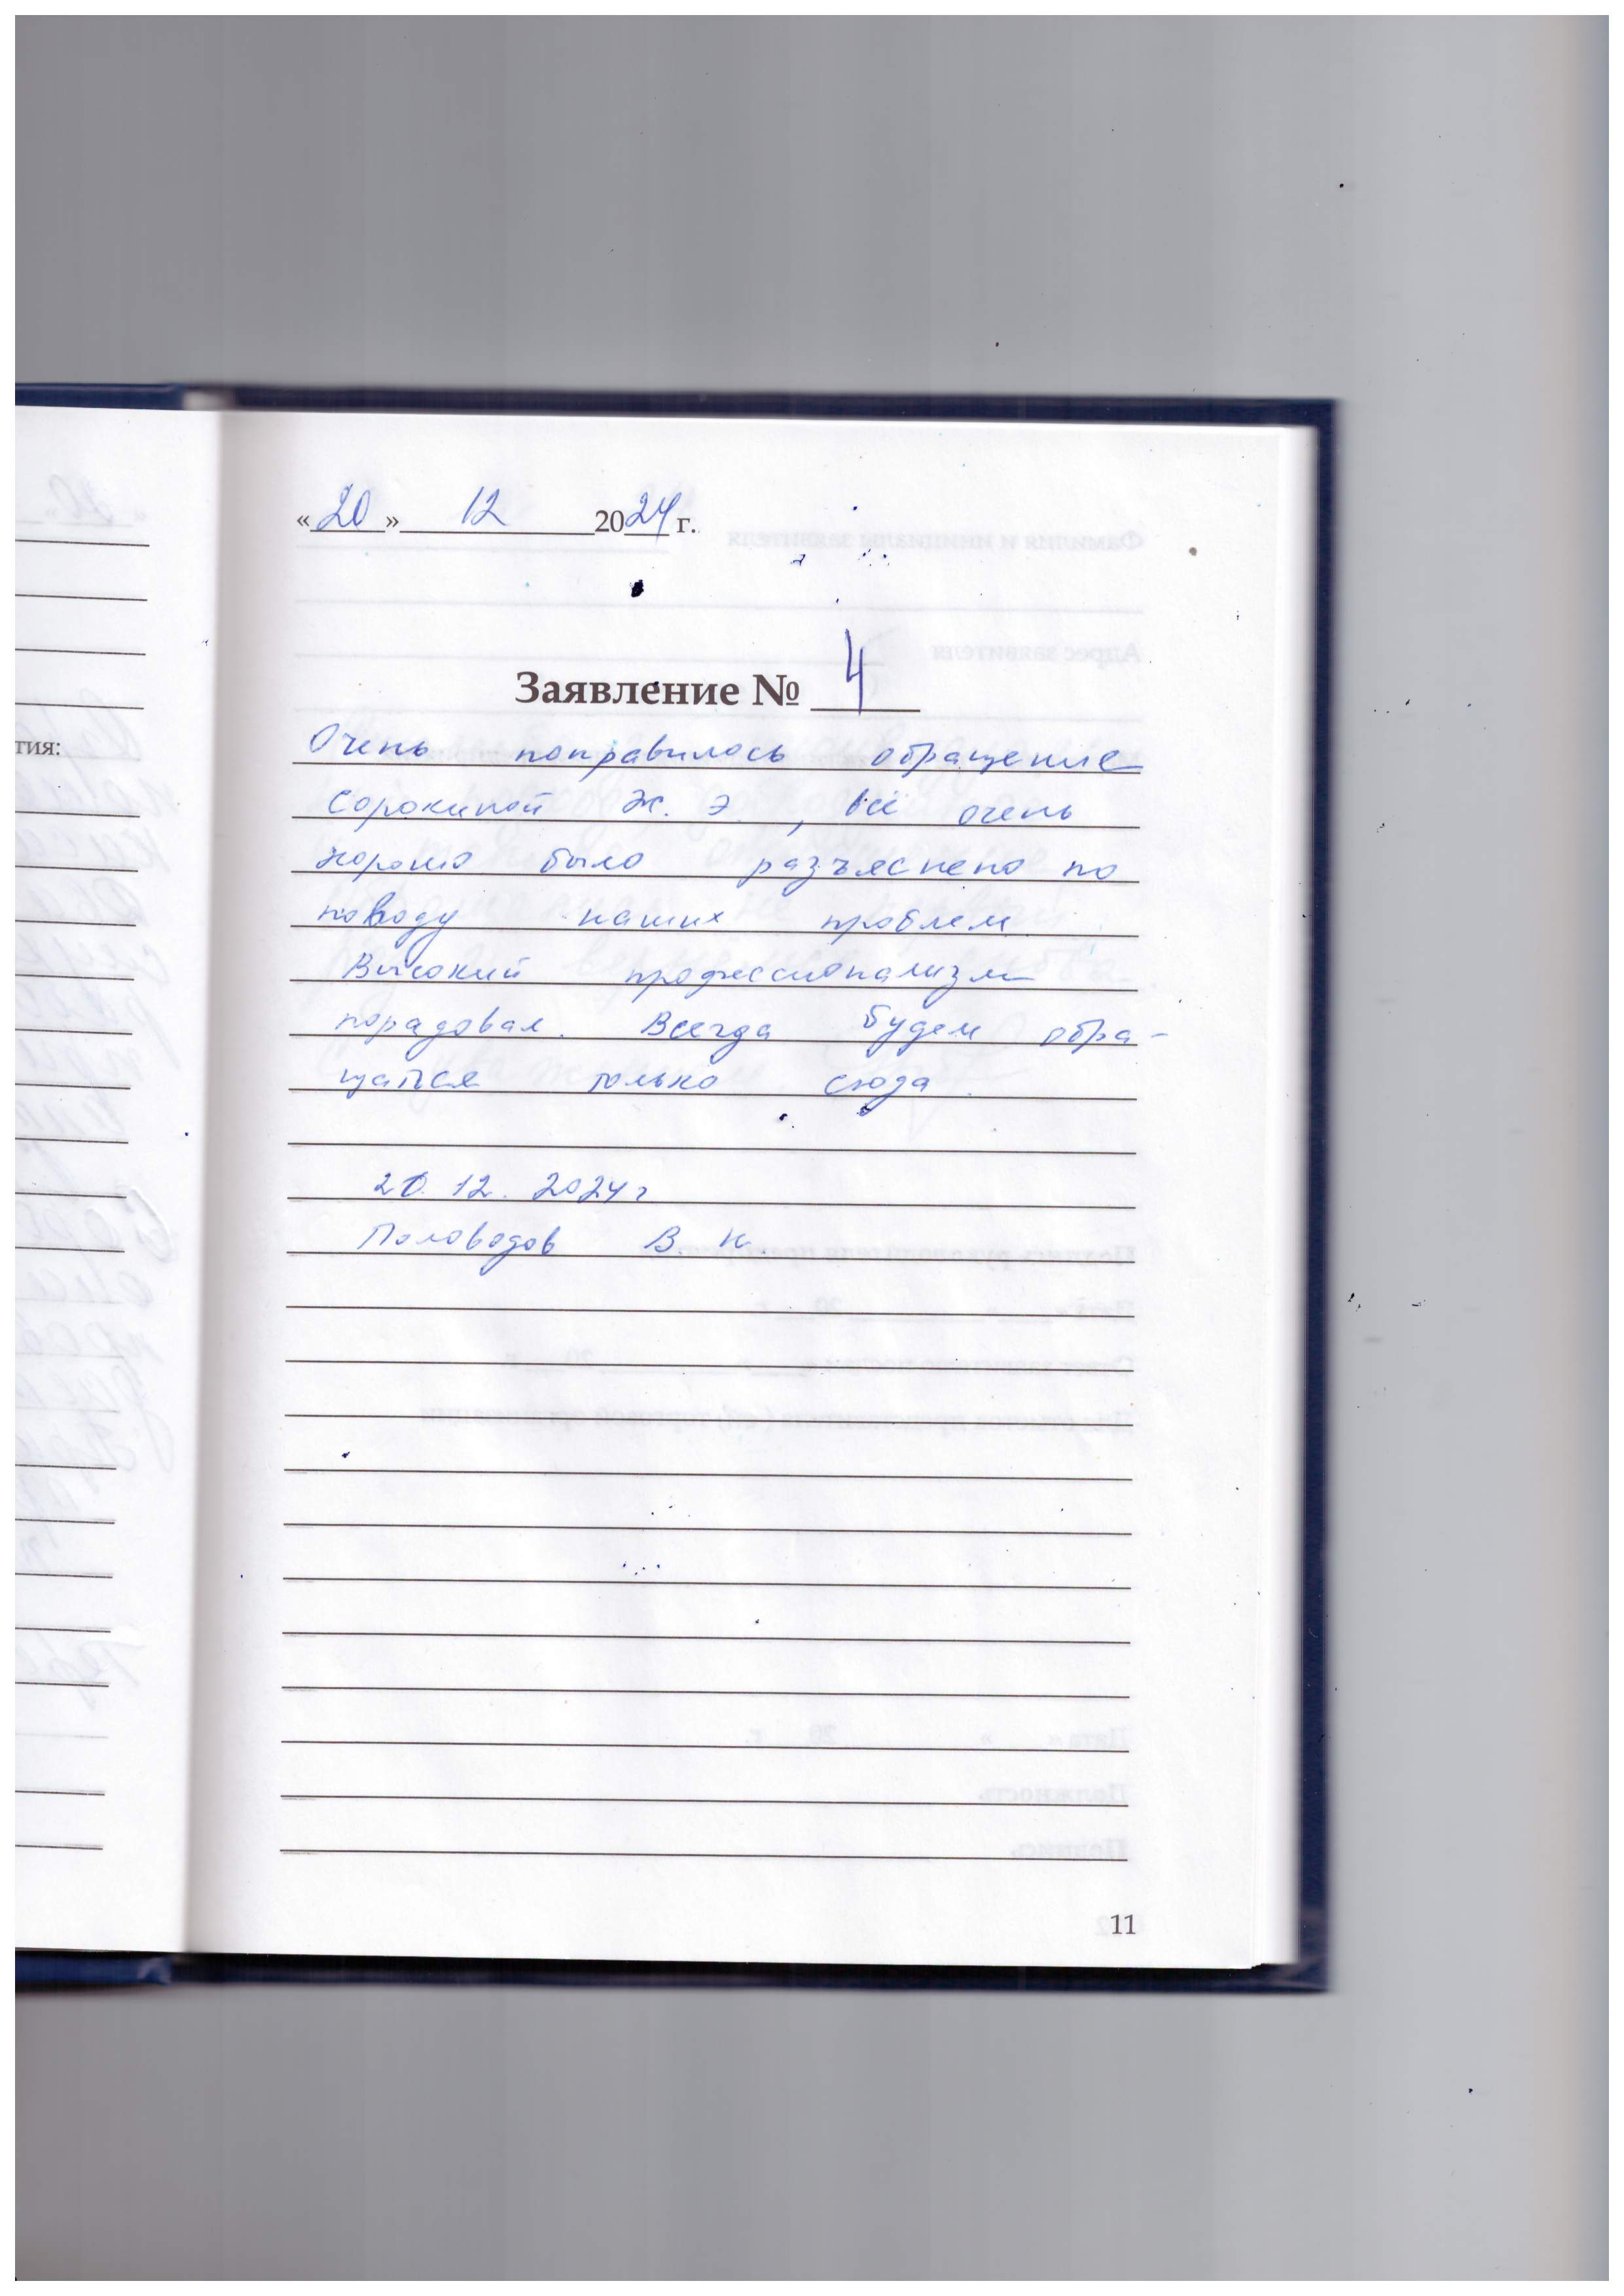 «20» 12 2024 г.
Заявление № 4
Очень понравилось обращение
Сорокиной Ж. Э., всё очень
хорошо было разъяснено по
поводу наших проблем.
Высокий профессионализм
порадовал. Всегда будем обра-
щаться только сюда.
20. 12. 2024 г
Половодов В. К.
11
тия: